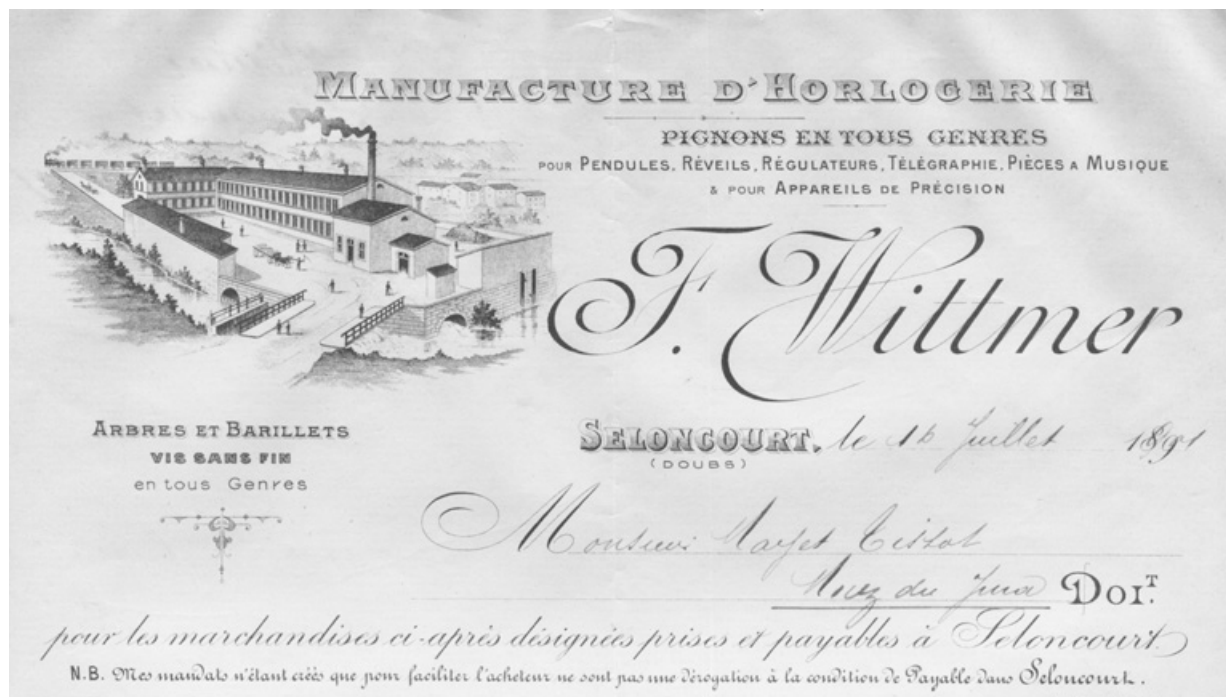 MANUFACTURE D'HORLOGERIE
PIGNONS EN TOUS GENRES
POUR PENDULES, RÉVEILS, RÉGULATEURS, TÉLÉGRAPHIE, PIÈCES A MUSIQUE
& POUR APPAREILS DE PRÉCISION
F. Wittmer
ARBRES ET BARILLETS
VIS SANS FIN
en tous Genres
SELONCOURT, le Juillet 1891
(DOUBS)
Monsieur Tissot
du Jura DOIT.
pour les marchandises ci-après désignées prises et payables à Seloncourt.
N.B. Mes mandats n'étant créés que pour faciliter l'acheteur ne sont pas une dérogation à la condition de Payable dans Seloncourt.